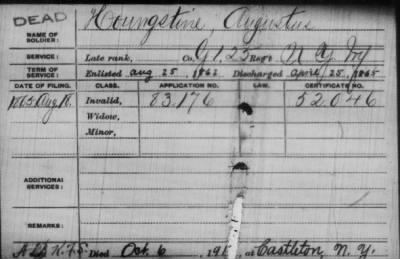 DEAD
NAME OF SOLDIER: Houngstine, Augustus
SERVICE: Late rank, Co. G, 125 Reg't N Y Inf
TERM OF SERVICE: Enlisted Aug 25, 1862 Discharged April 25, 1865
DATE OF FILING. CLASS. APPLICATION NO. LAW. CERTIFICATE NO.
1865 Aug 18. Invalid, 83,176 52,046
Widow,
Minor,
ADDITIONAL SERVICES:
REMARKS:
Died Oct. 6, 191 , at Castleton, N.Y.